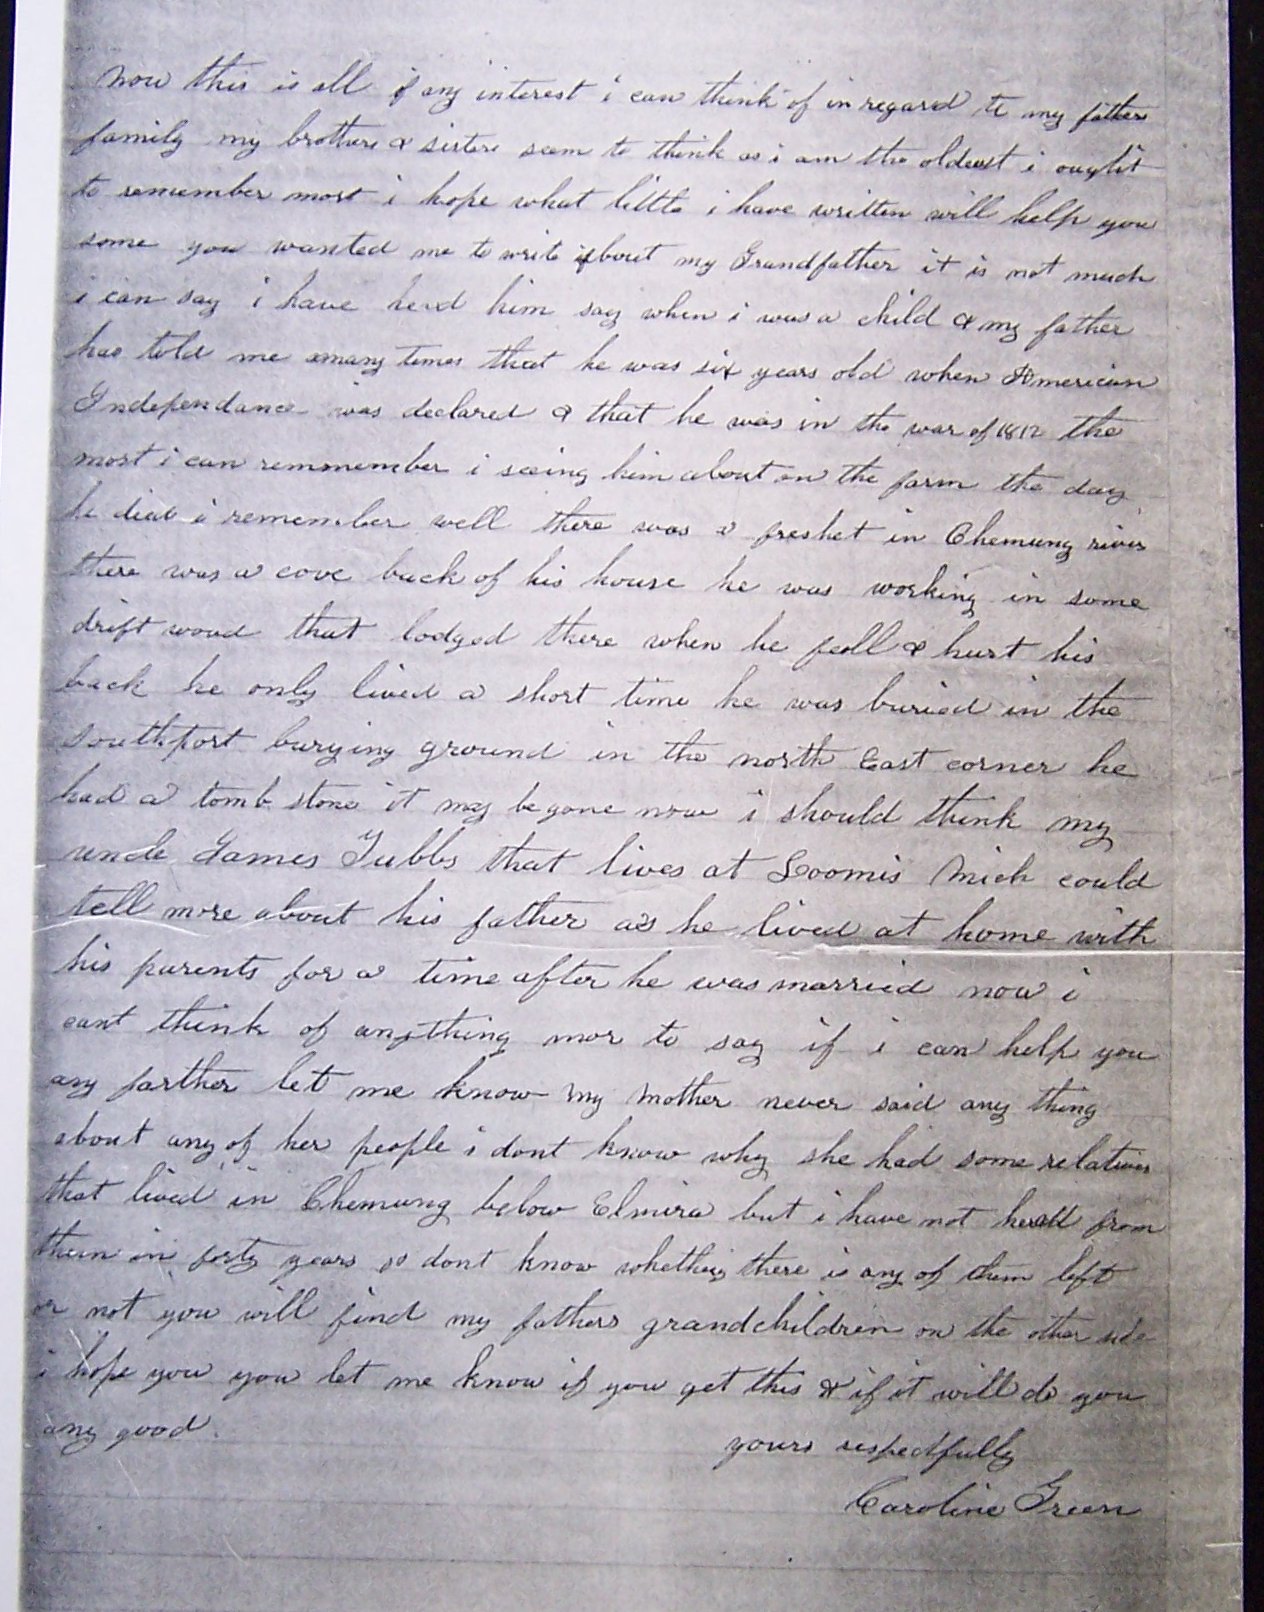 Now this is all of any interest i can think of in regard to my fathers
family my brothers & sisters seem to think as i am the oldest i ought
to remember most i hope what little i have written will help you
some you wanted me to write about my Grandfather it is not much
i can say i have herd him say when i was a child & my father
has told me many times that he was six years old when American
Independance was declared & that he was in the war of 1812 the
most i can remmember i seeing him about on the farm the day
he died i remember well there was a freshet in Chemung river
there was a cove back of his house he was working in some
drift wood that lodged there when he fell & hurt his
back he only lived a short time he was buried in the
Southport burying ground in the north East corner he
had a tomb stone it may be gone now i should think my
uncle James Tubbs that lives at Loomis Mich could
tell more about his father as he lived at home with
his parents for a time after he was married now i
cant think of anything mor to say if i can help you
any farther let me know My Mother never said any thing
about any of her people i dont know why she had some relatives
that lived in Chemung below Elmira but i have not herd from
them in forty years so dont know whether there is any of them left
or not you will find my fathers grandchildren on the other side
i hope you you let me know if you get this & if it will do you
any good.
yours respectfully
Caroline Green